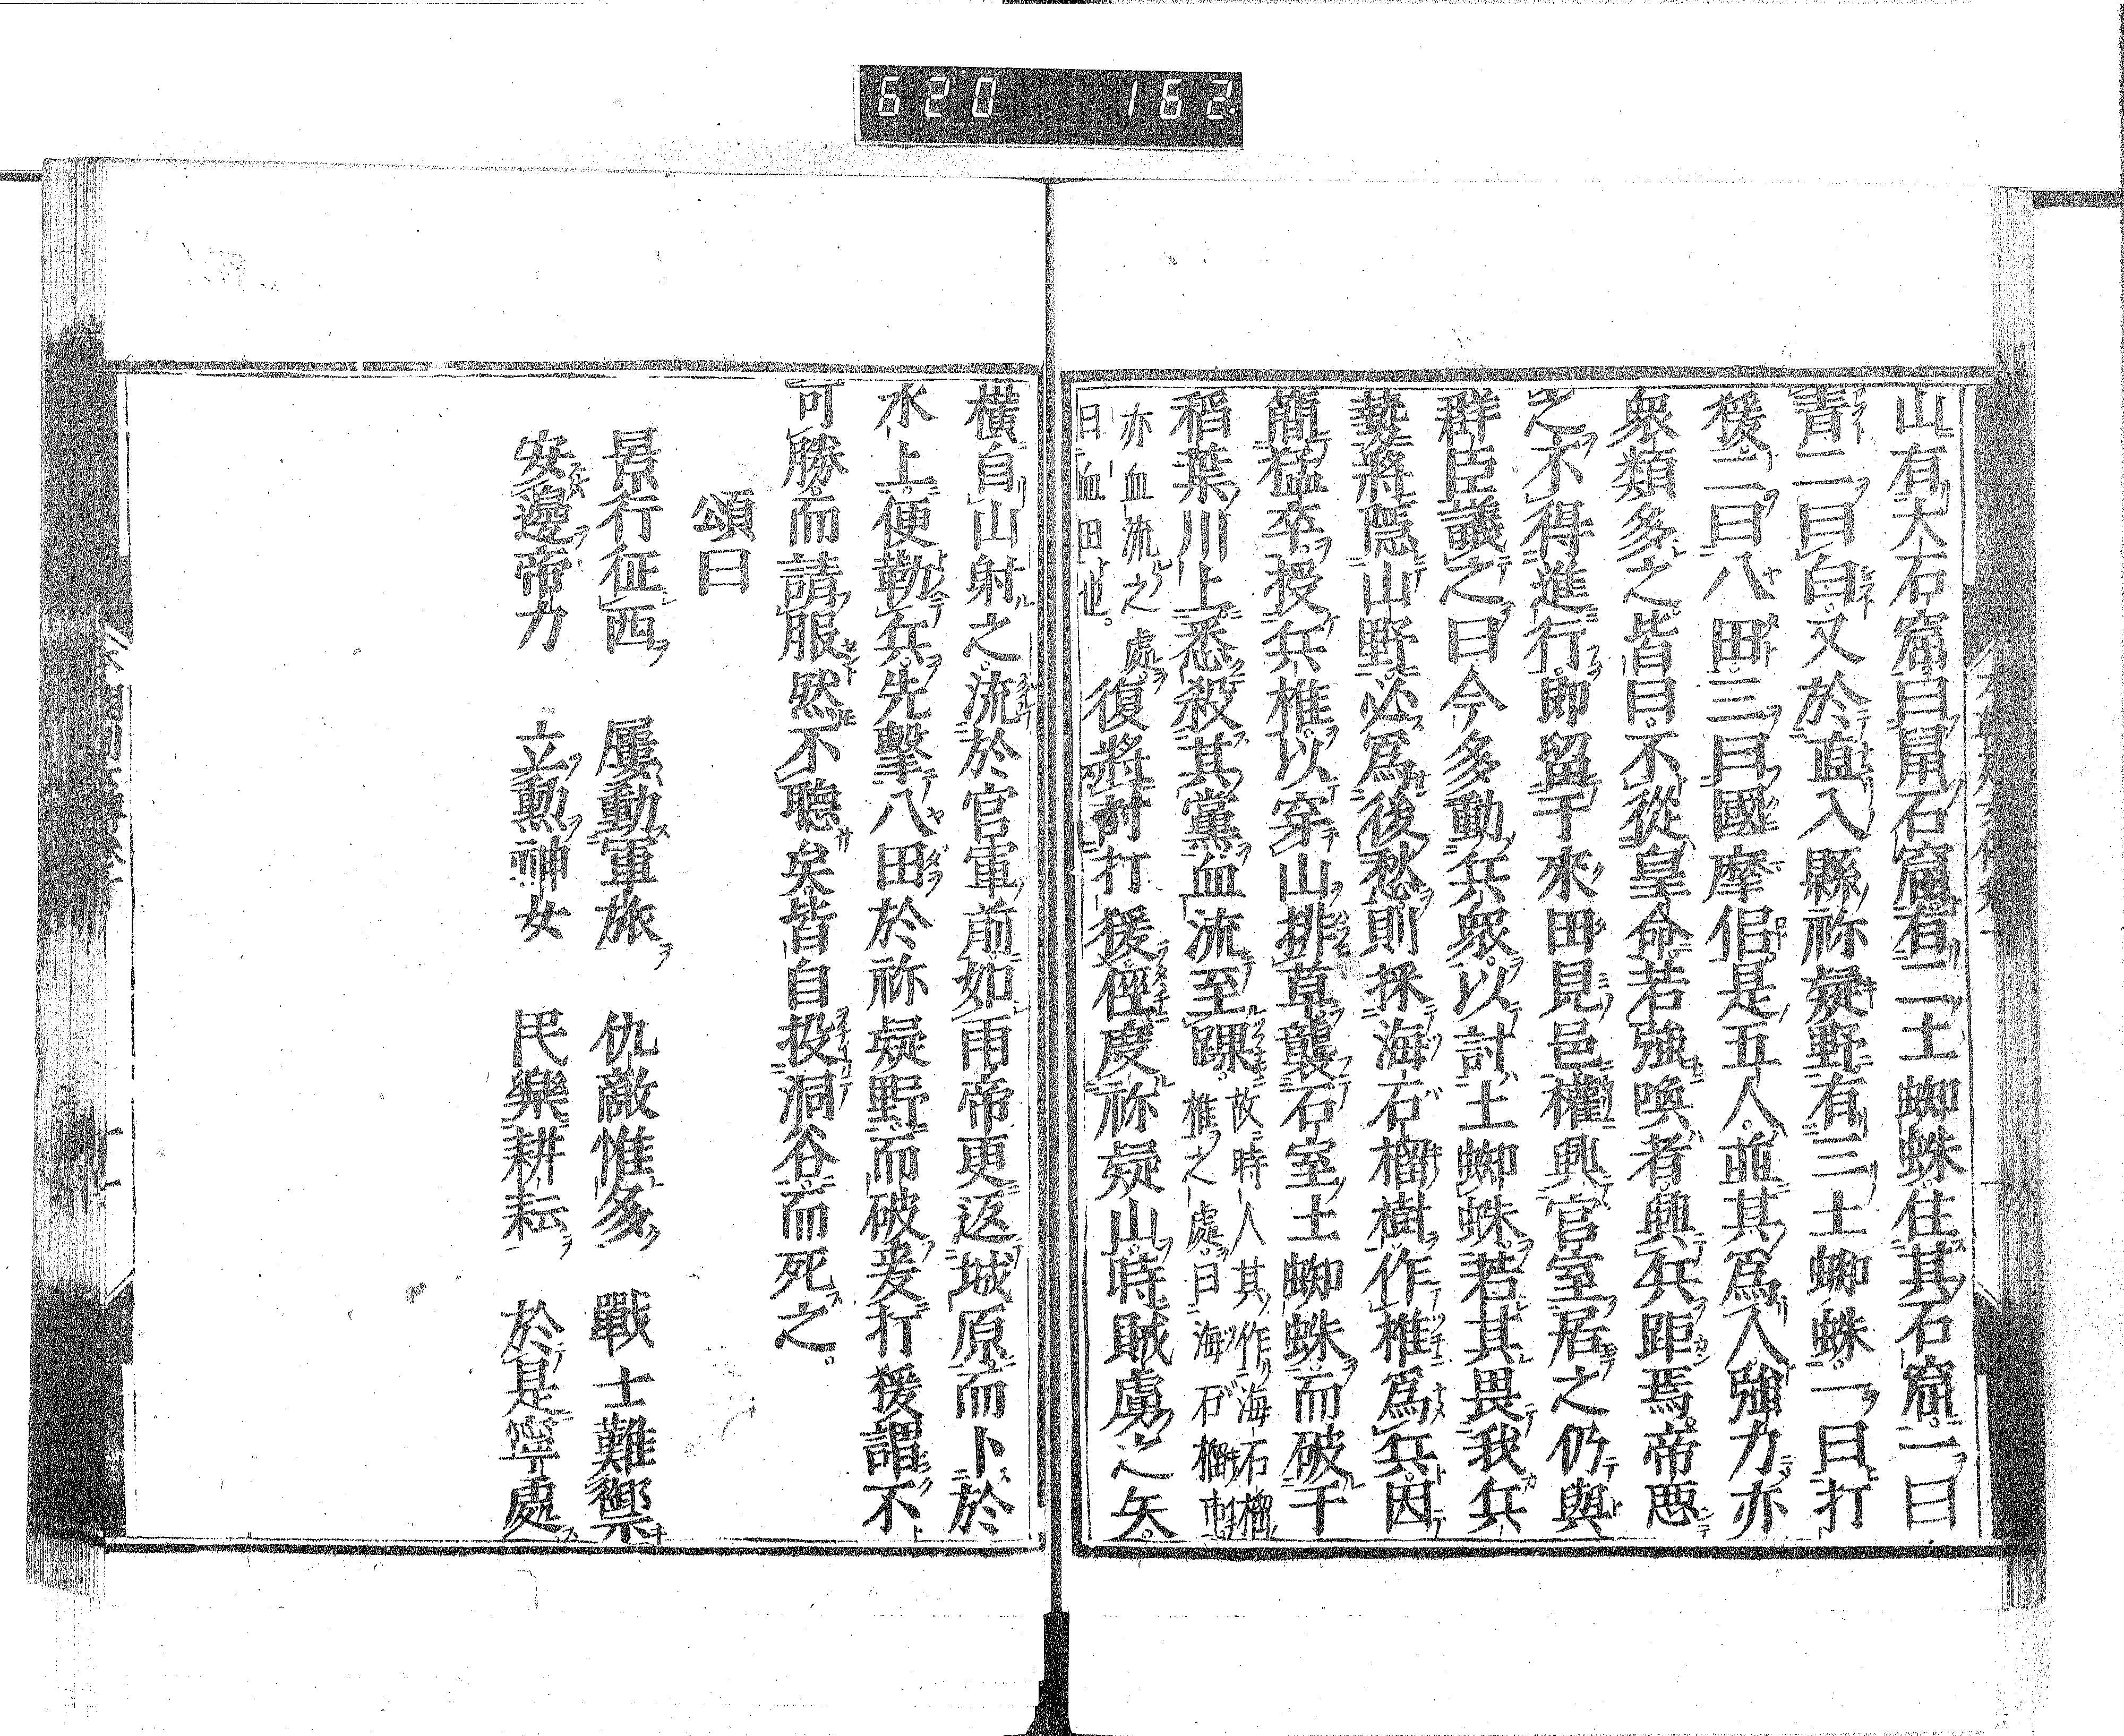 620 162
山有大石窟曰鼠石窟有二土蜘蛛住其石窟一曰
青二曰白又於直入縣祢疑野有三土蜘蛛一曰打
猨二曰八田三曰國摩侶是五人並其爲人強力亦
衆類多之皆曰不從皇命若強喚者興兵距焉帝悪
之不得進行即留于來田見邑權興宮室居之仍與
群臣議之曰今多動兵衆以討土蜘蛛若其畏我兵
勢將隱山野必爲後愁則採海石榴樹作椎爲兵因
簡猛卒授兵椎以穿山排草襲石室土蜘蛛而破于
稲葉川上悉殺其黨血流至踝故時人其作海石榴
椎之處曰海石榴市
亦血流之處
曰血田也復將討打猨侄度祢疑山時賊虜之矢
橫自山射之流於官軍前如雨帝更返城原而卜於
水上便勒兵先擊八田於祢疑野而破爰打猨謂不
可勝而請服然不聽矣皆自投洞谷而死之
頌曰
景行征西 屢動軍旅 仇敵惟多 戰士難禦
安邊帝力 立勲神女 民樂耕耘 於是寧處